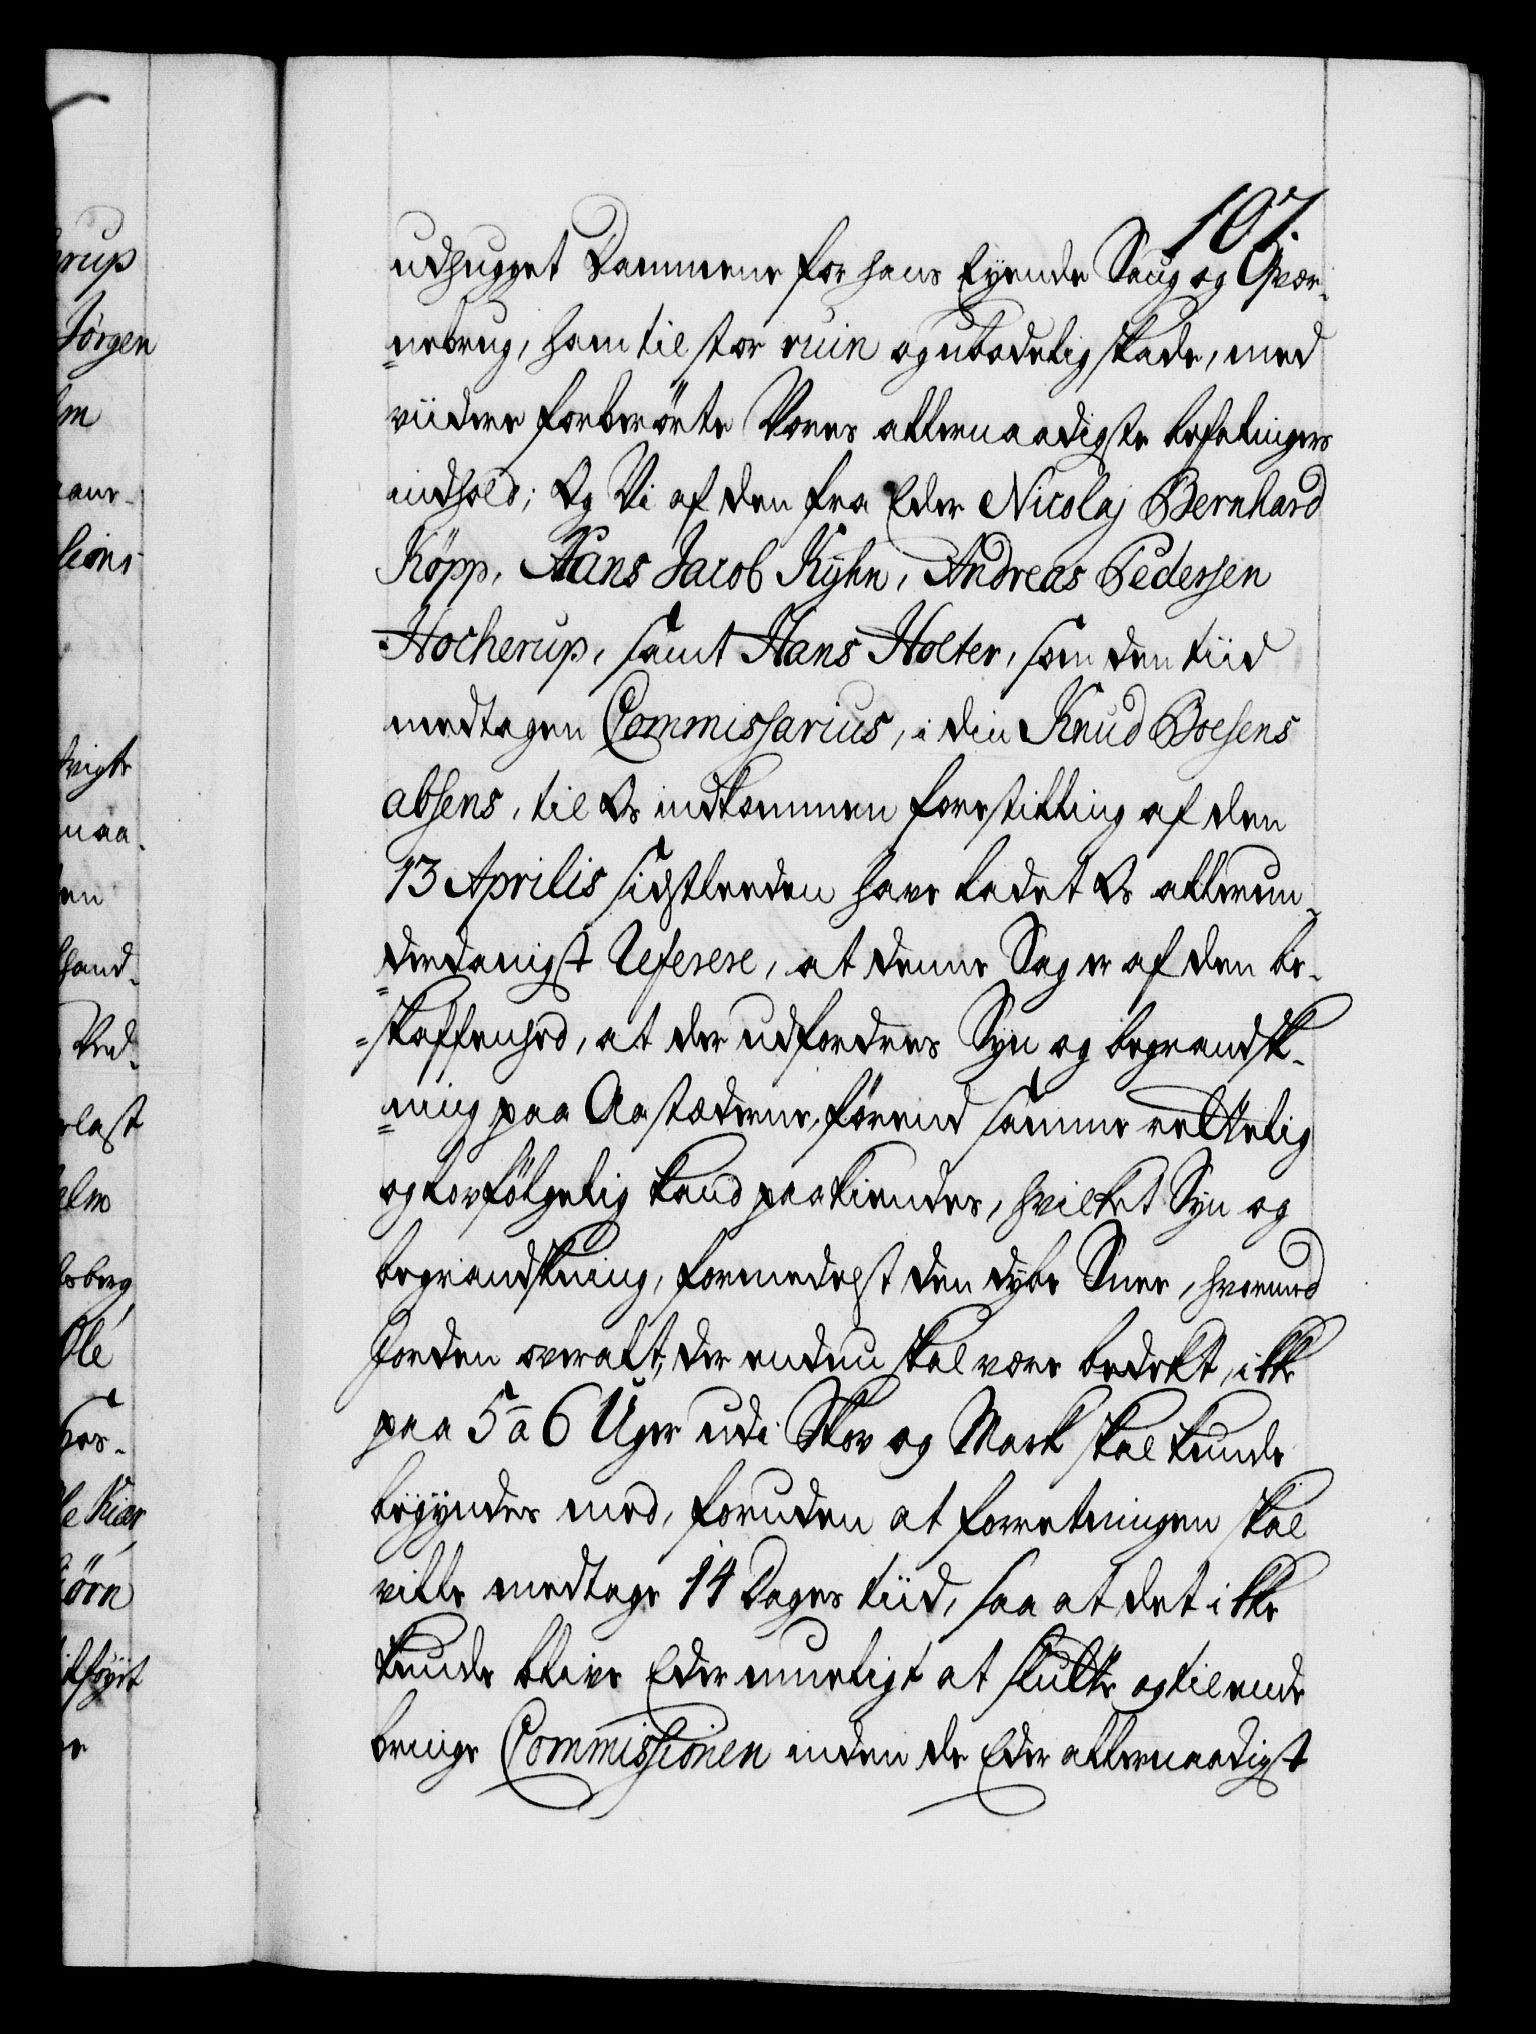 107.
udhugget Dammene for hans Eyende Saug og Qvær-
nebrug, ham til stor ruin og ubodelig skade, med
viidere forberörte Vores allernaadigste befalingers
indhold; Og Vi af den fra Eder Nicolaj Bernhard
Köpp, Hans Jacob Kyhn, Andreas Pedersen
Hocherup, samt Hans Holter, som den tiid
medtagen Commissarius, i din Knud Boesens
absens, til Os indkommen forestilling af den
13 Aprilis sidstleeden have ladet Os allerun-
derdanigst referere, at denne Sag er af den be-
skaffenhed, at der udfordres Syn og begrandsk-
ning paa Aastæderne, förend samme rettelig
og lovfölgelig kand paakiendes, hvilket Syn og
begrandskning, formedelst den dybe Snee, hvormed
Jorden overalt, der endnu skal være bedekt, ikke
paa 5 a 6 Uger udi Skov og Mark skal kunde
begyndes med, foruden at forretningen skal
ville medtage 14 Dages tiid, saa at det ikke
kunde blive Eder mueligt at slutte og til ende
bringe Commissionen inden de Eder allernaadigst
rup
Jörgen
lions
vigte
maa-
hand-
Ved-
last
berg
Ole